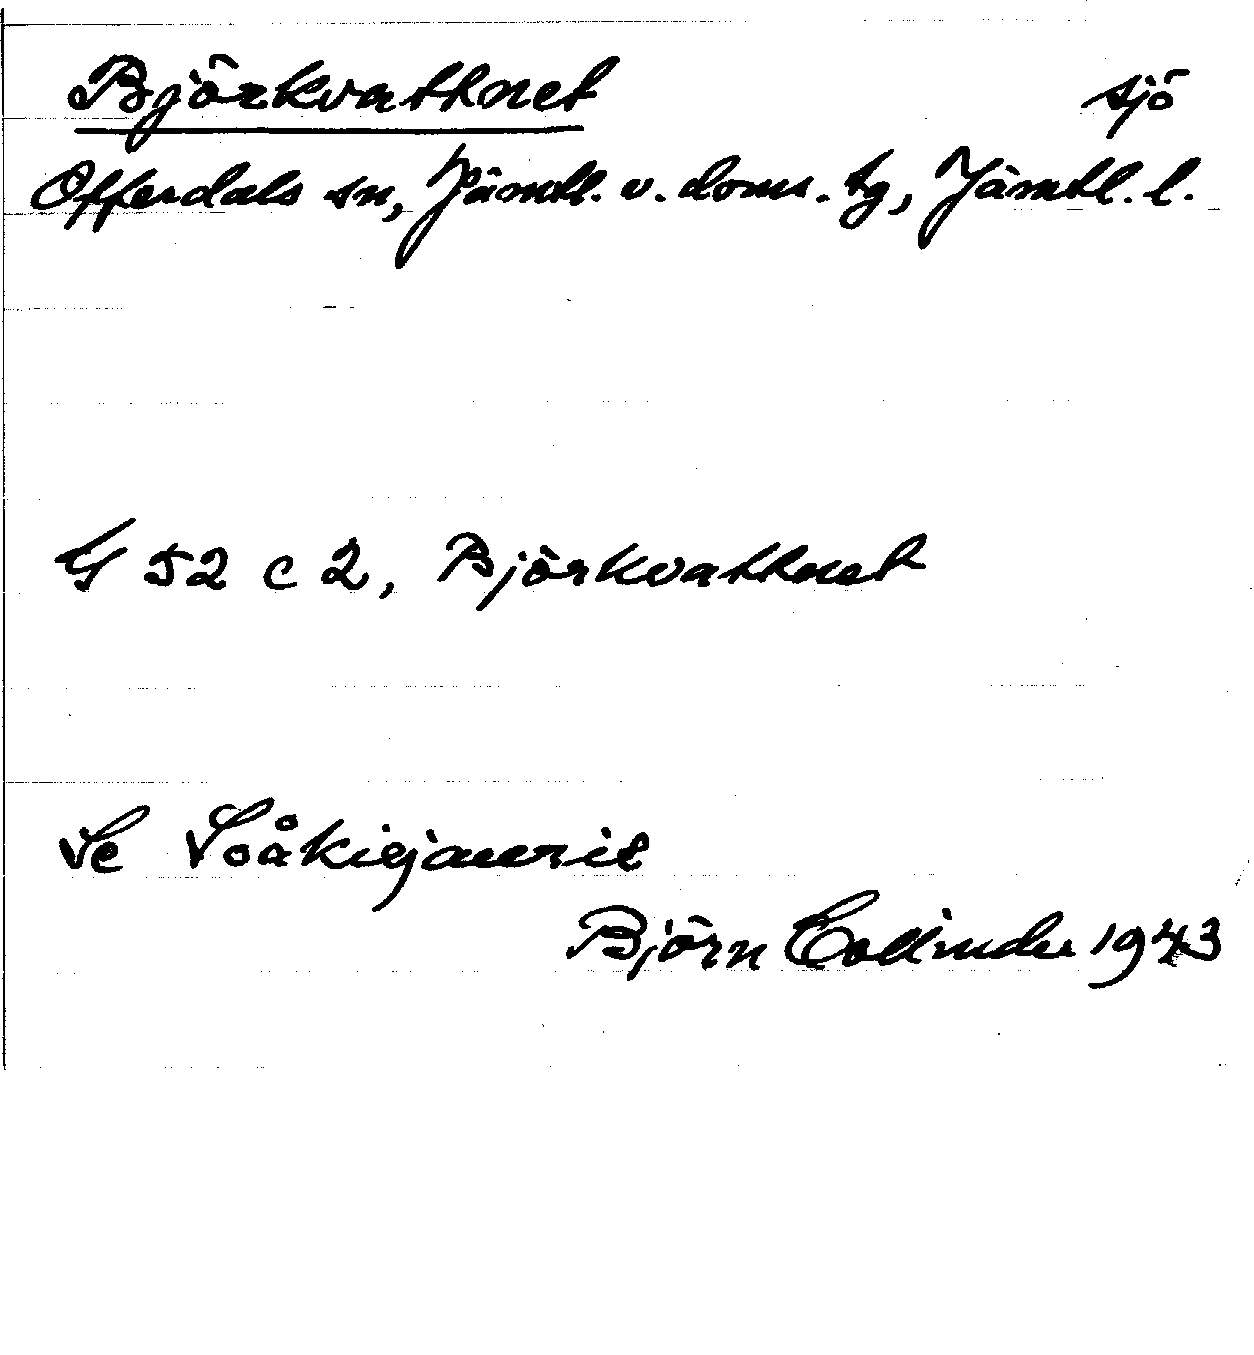 Björkvattnet sjö
Offerdals sn, Jämtl. v. doms. tg, Jämtl. l.
G 52 c 2, Björkvattnet
Se Soåkiejaurie
Björn Collinder 1943